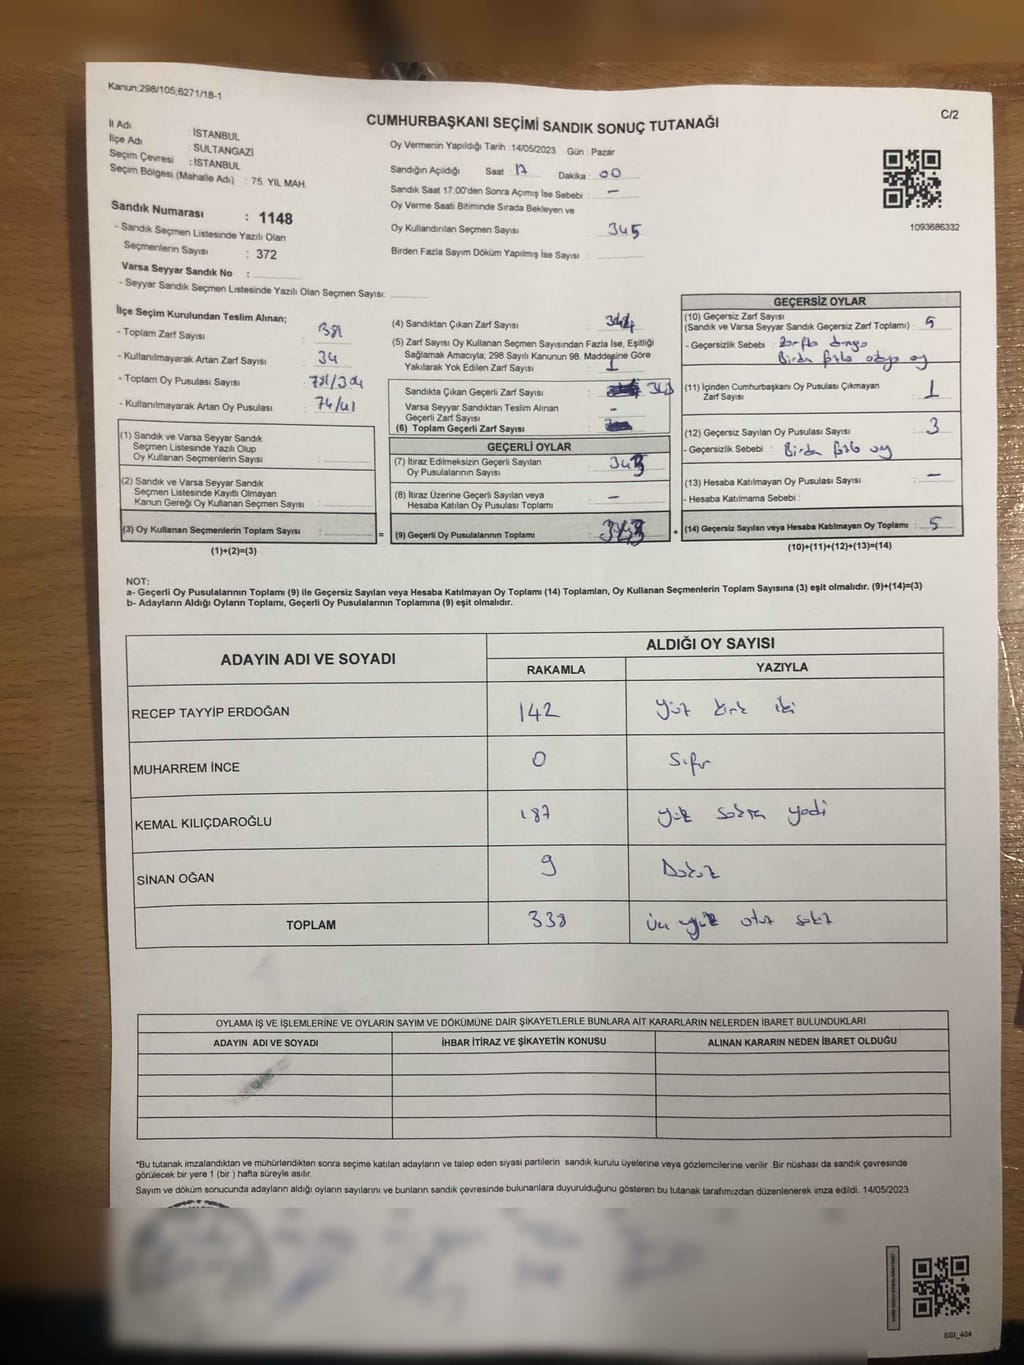 Kanun:298/105;6271/18-1
C/2
CUMHURBAŞKANI SEÇİMİ SANDIK SONUÇ TUTANAĞI
İl Adı : İSTANBUL
İlçe Adı : SULTANGAZİ
Seçim Çevresi : İSTANBUL
Seçim Bölgesi (Mahalle Adı) : 75. YIL MAH.
Sandık Numarası : 1148
- Sandık Seçmen Listesinde Yazılı Olan
Seçmenlerin Sayısı : 372
Varsa Seyyar Sandık No :
- Seyyar Sandık Seçmen Listesinde Yazılı Olan Seçmen Sayısı:
Oy Vermenin Yapıldığı Tarih :14/05/2023 Gün : Pazar
Sandığın Açıldığı Saat : 17 Dakika : 00
Sandık Saat 17.00'den Sonra Açımış İse Sebebi : —
Oy Verme Saati Bitiminde Sırada Bekleyen ve
Oy Kullandırılan Seçmen Sayısı : 345
Birden Fazla Sayım Döküm Yapılmış İse Sayısı :
1093686332
İlçe Seçim Kurulundan Teslim Alınan;
- Toplam Zarf Sayısı : 381
- Kullanılmayarak Artan Zarf Sayısı : 34
- Toplam Oy Pusulası Sayısı :
- Kullanılmayarak Artan Oy Pusulası : 74/41
(1) Sandık ve Varsa Seyyar Sandık
Seçmen Listesinde Yazılı Olup
Oy Kullanan Seçmenlerin Sayısı :
(2) Sandık ve Varsa Seyyar Sandık
Seçmen Listesinde Kayıtlı Olmayan
Kanun Gereği Oy Kullanan Seçmen Sayısı :
(3) Oy Kullanan Seçmenlerin Toplam Sayısı :
(1)+(2)=(3)
=
(4) Sandıktan Çıkan Zarf Sayısı :
(5) Zarf Sayısı Oy Kullanan Seçmen Sayısından Fazla İse, Eşitliği
Sağlamak Amacıyla; 298 Sayılı Kanunun 98. Maddesine Göre
Yakılarak Yok Edilen Zarf Sayısı : 1
Sandıkta Çıkan Geçerli Zarf Sayısı : 343
Varsa Seyyar Sandıktan Teslim Alınan
Geçerli Zarf Sayısı : -
(6) Toplam Geçerli Zarf Sayısı :
GEÇERLİ OYLAR
(7) İtiraz Edilmeksizin Geçerli Sayılan
Oy Pusulalarının Sayısı : 343
(8) İtiraz Üzerine Geçerli Sayılan veya
Hesaba Katılan Oy Pusulası Toplamı : —
(9) Geçerli Oy Pusulalarının Toplamı :
+
GEÇERSİZ OYLAR
(10) Geçersiz Zarf Sayısı
(Sandık ve Varsa Seyyar Sandık Geçersiz Zarf Toplamı) : 5
- Geçersizlik Sebebi :
Birden fazla oy
(11) İçinden Cumhurbaşkanı Oy Pusulası Çıkmayan
Zarf Sayısı : 1
(12) Geçersiz Sayılan Oy Pusulası Sayısı : 3
- Geçersizlik Sebebi : Birden fazla oy
(13) Hesaba Katılmayan Oy Pusulası Sayısı : —
- Hesaba Katılmama Sebebi :
(14) Geçersiz Sayılan veya Hesaba Katılmayan Oy Toplamı : 5
(10)+(11)+(12)+(13)=(14)
NOT:
a- Geçerli Oy Pusulalarının Toplamı (9) ile Geçersiz Sayılan veya Hesaba Katılmayan Oy Toplamı (14) Toplamları, Oy Kullanan Seçmenlerin Toplam Sayısına (3) eşit olmalıdır. (9)+(14)=(3)
b- Adayların Aldığı Oyların Toplamı, Geçerli Oy Pusulalarının Toplamına (9) eşit olmalıdır.
ADAYIN ADI VE SOYADI ALDIĞI OY SAYISI
RAKAMLA YAZIYLA
RECEP TAYYİP ERDOĞAN 142 Yüz kırk iki
MUHARREM İNCE 0 Sıfır
KEMAL KILIÇDAROĞLU 187 Yüz seksen yedi
SİNAN OĞAN 9 Dokuz
TOPLAM 338 Üç yüz otuz sekiz
OYLAMA İŞ VE İŞLEMLERİNE VE OYLARIN SAYIM VE DÖKÜMÜNE DAİR ŞİKAYETLERLE BUNLARA AİT KARARLARIN NELERDEN İBARET BULUNDUKLARI
ADAYIN ADI VE SOYADI İHBAR İTİRAZ VE ŞİKAYETİN KONUSU ALINAN KARARIN NEDEN İBARET OLDUĞU
*Bu tutanak imzalandıktan ve mühürlendikten sonra seçime katılan adayların ve talep eden siyasi partilerin sandık kurulu üyelerine veya gözlemcilerine verilir .Bir nüshası da sandık çevresinde
görülecek bir yere 1 (bir ) hafta süreyle asılır.
Sayım ve döküm sonucunda adayların aldığı oyların sayılarını ve bunların sandık çevresinde bulunanlara duyurulduğunu gösteren bu tutanak tarafımızdan düzenlenerek imza edildi. 14/05/2023
SSI_404